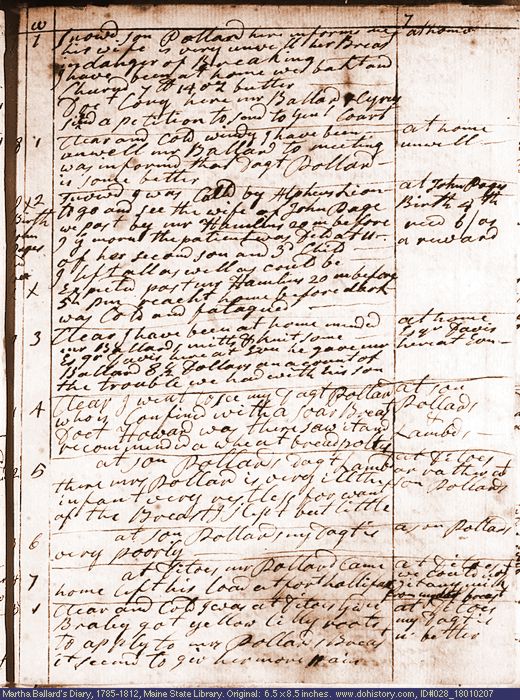 w 7
1 Snowd son Pollard here informs me at home
his wife is very unwell her Breast
in danger of Breaking
I have been at home we bakt and
Churnd 7 lb 14 oz butter
Doct Cony here mr Ballard & Cyrus
sind a petition to send to Genl Coart
8 1 Clear and Cold windy I have been at home
unwell mr Ballard to meeting unwell
was informd that Dagt Pollard
is some better
9 2 Snowd I was Calld by Alpheus Lion at John Pages
Birth to go and see the wife of John Page Birth 4th
we past by mr Hamlins 20 m before recd 6/ as
7 morn the patient was Debat a reward
of her second son and 3d Child
I left all as well as could be
X Expected past mr Hamlins 20 m before
5 h pm reacht home before dark
was Cold and fatagued
3 Clear I have been at home mended at home
mr Ballards mitts & knit some Esqr Davis
Esqr Davis here at Even he gave mr here at evn
Ballard 8½ Dollars on account of
the trouble we had with his son
4 Clear I went to see my Dagt Pollard at son
who is Confind with a soar Breast Pollards
Doct Howard was there saw it and &
recommended a wheat bread poltis Lambds
12 5 at son Pollards Dagt Lambd at Titoes
there mrs Pollard is very ill the or rather at
infant very restless for want son Pollards
of the Breast I slept but little
6 at son Pollards my Dagt is at son Pollards
very poorly
7 at Titoes mr Pollard Came at Titoes
home left his load at fort hallifax
1 Clear and Cold I was at Titoes at Titoes
Braley got yellow lilly roots my Dagt is
to apply to mrs Pollards Breast better
it seemd to giv her more pain
Martha Ballard's Diary, 1785-1812, Maine State Library. Original: 6.5 x 8.5 inches. www.dohistory.com, ID#028_18010207